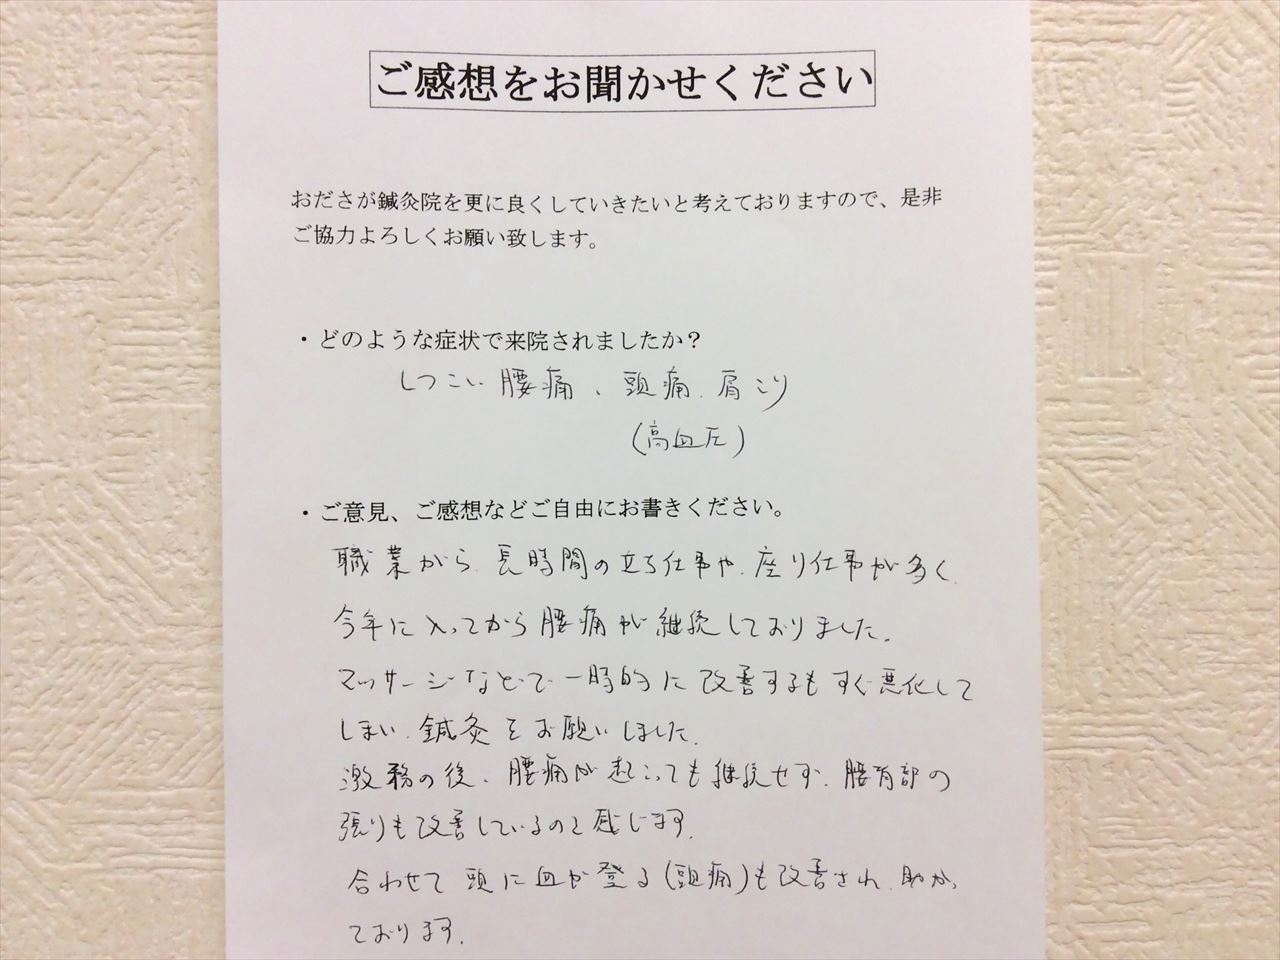 ご感想をお聞かせください
おださが鍼灸院を更に良くしていきたいと考えておりますので、是非
ご協力よろしくお願い致します。
・どのような症状で来院されましたか？
しつこい腰痛、頭痛、肩こり
(高血圧)
・ご意見、ご感想などご自由にお書きください。
職業がら、長時間の立ち仕事や、座り仕事が多く、
今年に入ってから腰痛が継続しておりました。
マッサージなどで一時的に改善するもすぐ悪化して
しまい、鍼灸をお願いしました。
激務の後、腰痛が起こっても継続せず、腰背部の
張りも改善しているのを感じます。
合わせて頭に血が登る(頭痛)も改善され、助かっ
ております。